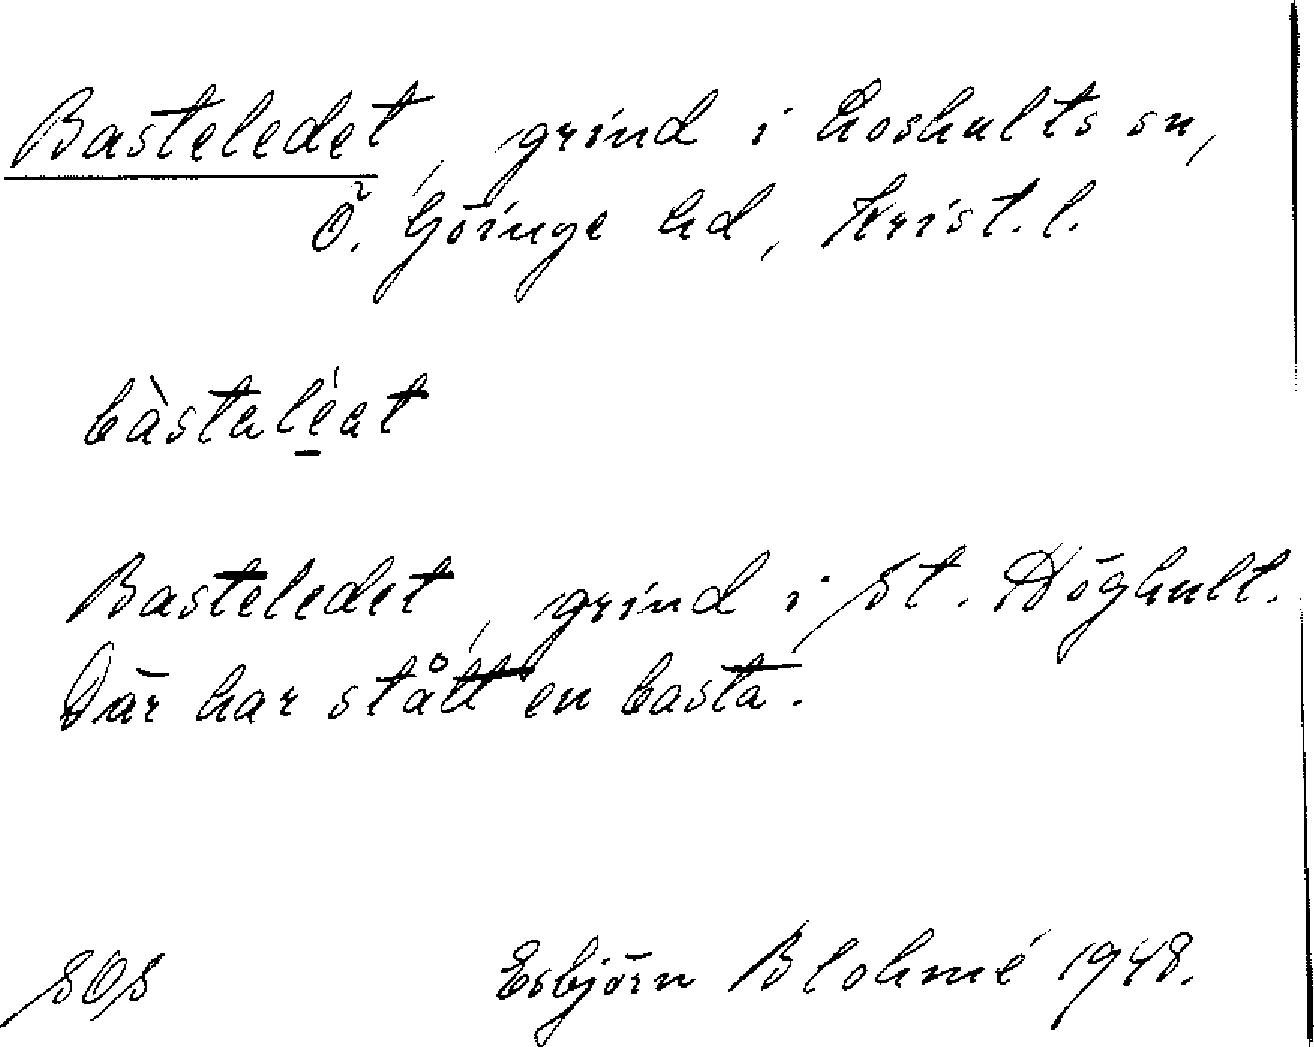 Basteledet, grind i Loshults sn,
Ö. Göinge hd, Krist. l.
bàstaléat
Basteledet, grind i St. Döghult.
Där har stått en basta.
SOS Esbjörn Blohmé 1948.